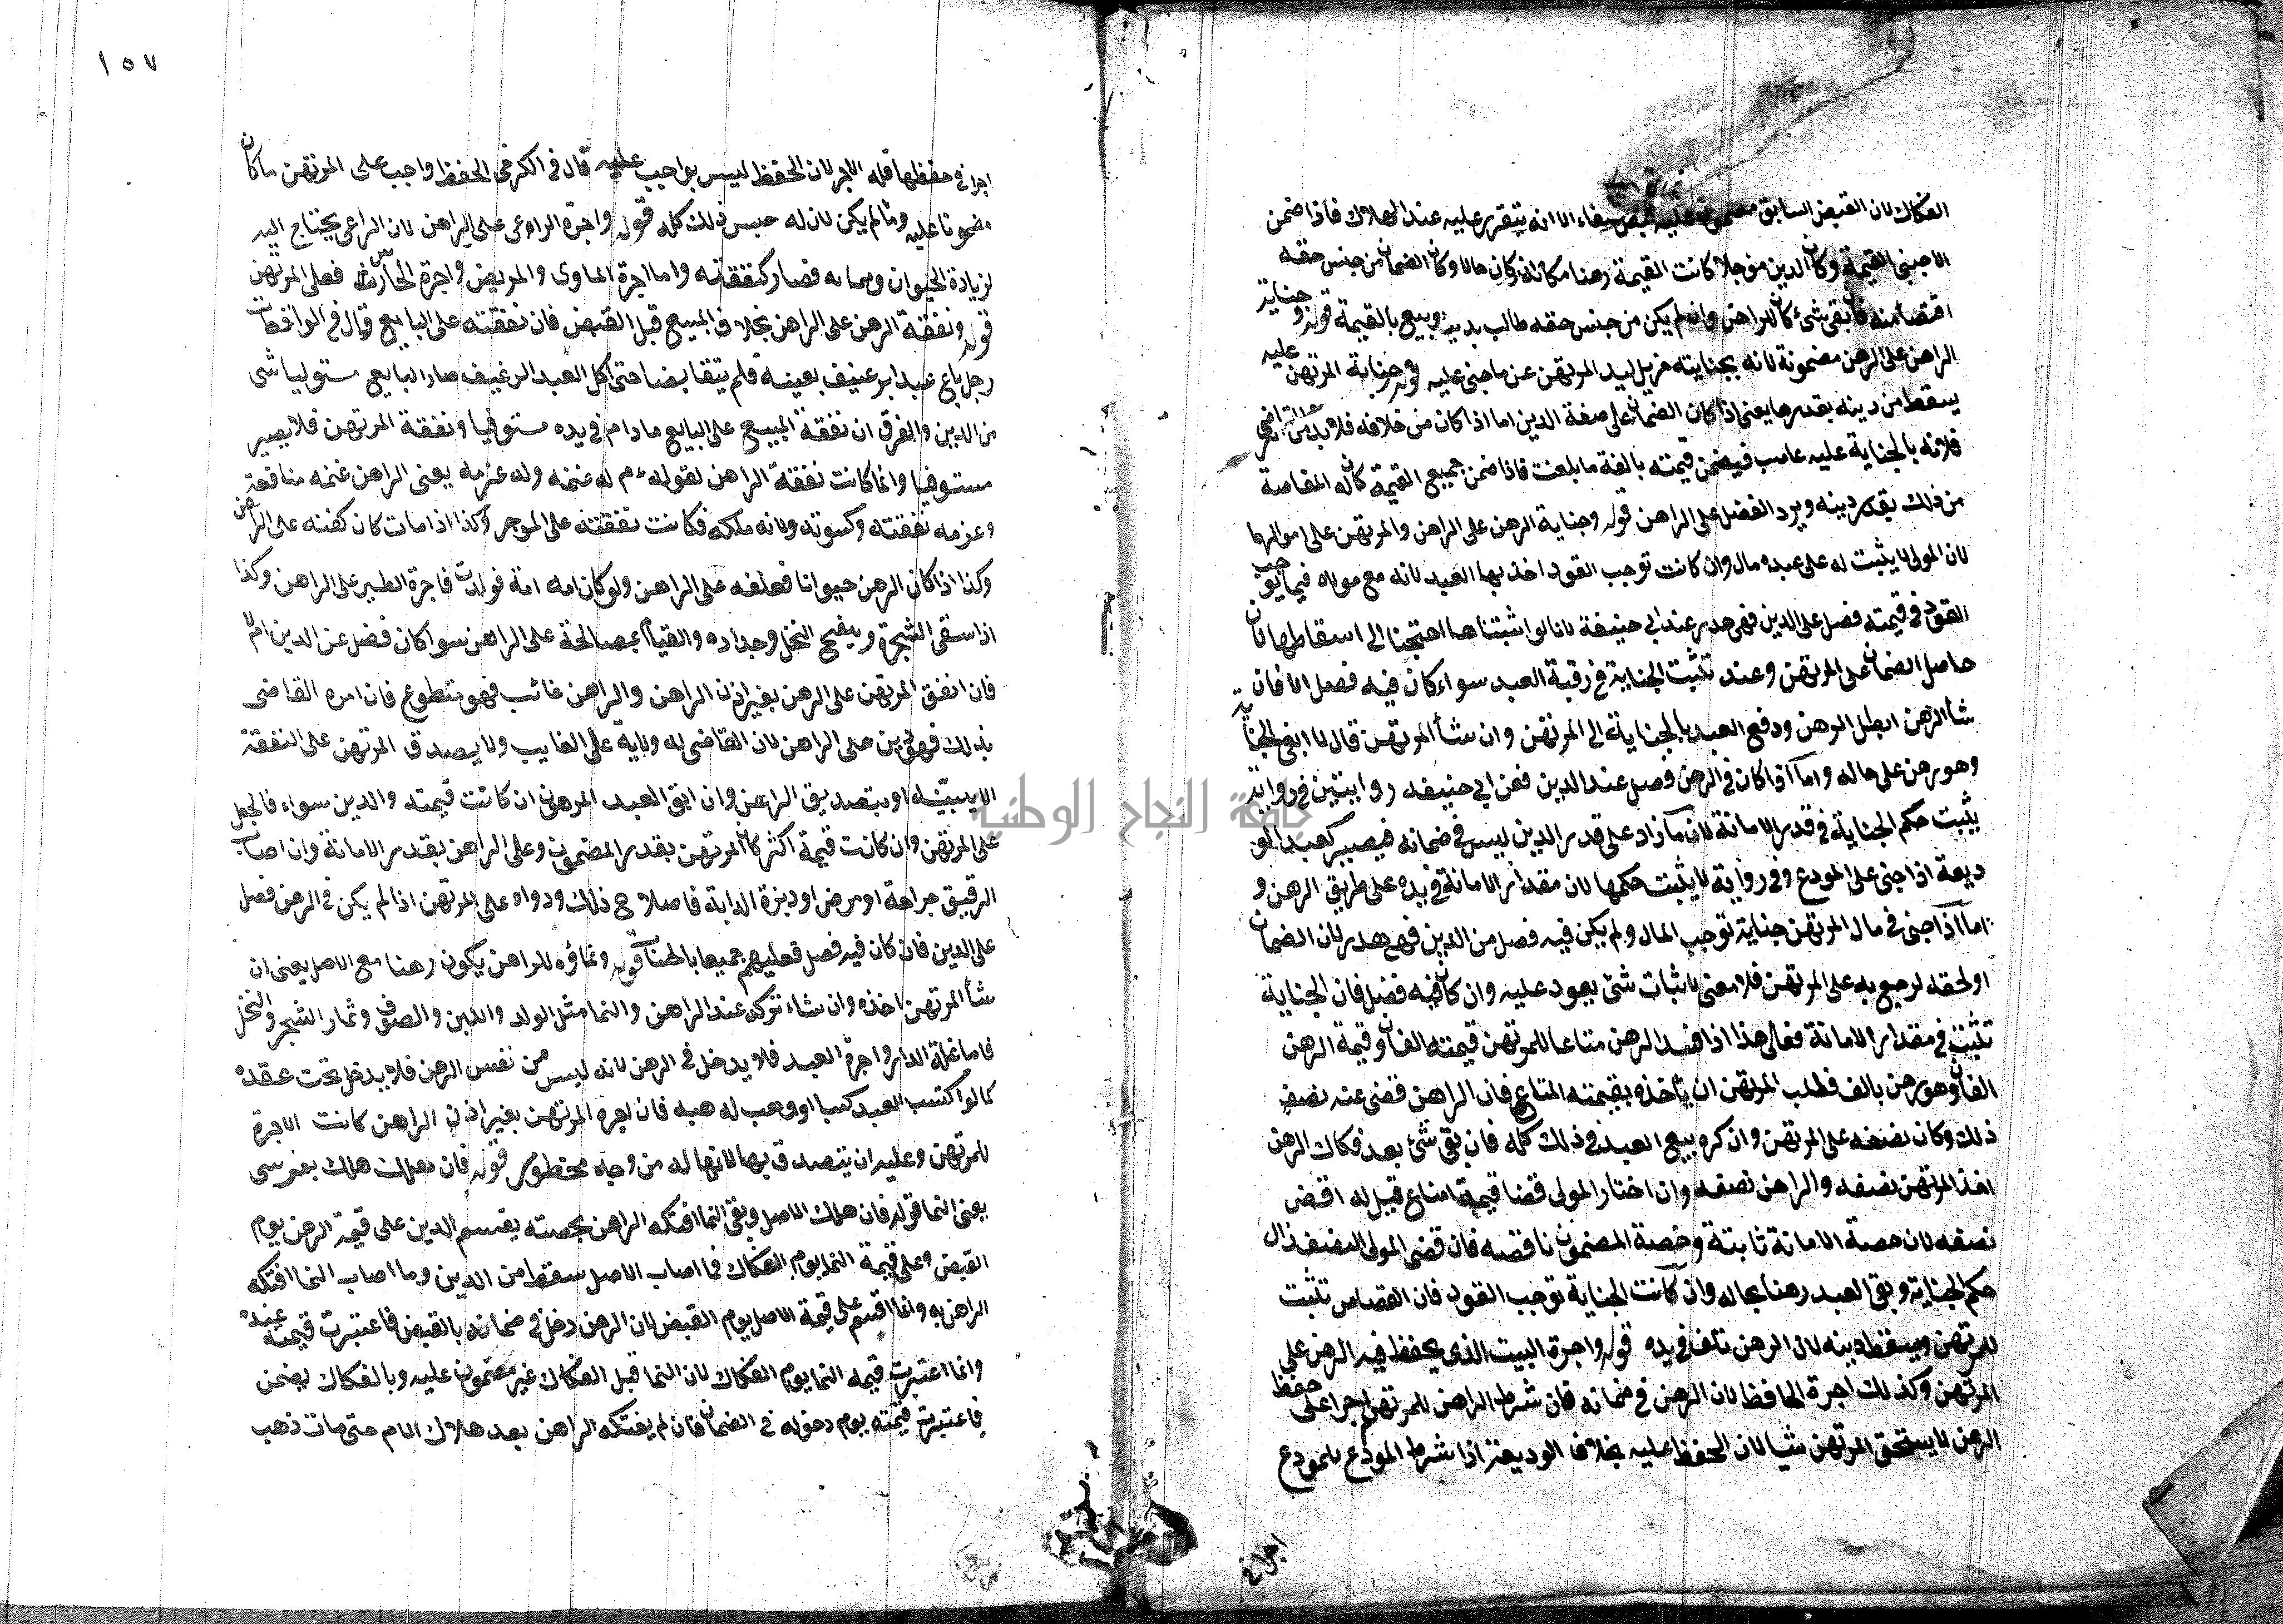 الفكاك لان القبض السابق مضمون عليه الا انه يتقرر عليه عند الهلاك فاذا ضمن
الاجنبي القيمة وكان الدين مؤجلا كانت القيمة رهنا مكانه وان كان حالا وكان الضمان من جنس حقه
اقتضا منه فان بقي شئ كان للراهن وان لم يكن من جنس حقه طالب بدينه وبيع بالقيمة قوله وجناية
الراهن على الرهن مضمونة لانه بجنايته مزيل ليد المرتهن عن ما جني عليه قوله وجناية المرتهن عليه
يسقط من دينه بقدرها يعني اذا كان الضمان على صفة الدين اما اذا كان من خلافه فلا بد من التراضي
فلانه بالجناية عليه غاصب فيضمن قيمته بالغة ما بلغت فاذا ضمن جميع القيمة كان له المقاصة
من ذلك بقدر دينه ويرد الفضل على الراهن قوله وجناية الرهن على الراهن والمرتهن على اموالهما
لان المولى لا يثبت له على عبده مال وان كانت توجب القود اخذ بها العبد لانه مع مولاه فيما يوجب
القود في قيمته فضل على الدين فهي هدر عند ابي حنيفة لانا لو اثبتناها احتجنا الى اسقاطها لان
حاصل الضمان على المرتهن وعند تثبت الجناية في رقبة العبد سواء كان فيه فصل الا فان
شأ الرهن ابطل الرهن ودفع العبد بالجناية الى المرتهن وان شأ المرتهن قال لا ابغي الجناية
وهو رهن على حاله واما اذا كان في الرهن فصل عند الدين فعن ابي حنيفه روايتين في رواية
يثبت حكم الجناية في قدر الامانة لان ما زاد على قدر الدين ليس في ضمانه فيصير كعبد المو
ديعة اذا جنى على المودع وفي رواية لا يثبت حكمها لان مقدار الامانة في يده على طريق الرهن و
اما اذا جنى في مال المرتهن جناية توجب المال ولم يكن فيه فصل من الدين فهي هدر لان الضمان
اولحقه لرجع به على المرتهن فلا معنى لاثبات شئ يعود عليه وان كان فيه فضل فان الجناية
تثبت في مقدار الامانة فعلى هذا اذا افسد الرهن متاعا للمرتهن قيمته الفان وقيمة الرهن
الفان وهو رهن بالف فطلب المرتهن ان ياخذه بقيمته المتاع فان الراهن قضى عنه نصف
ذلك وكان نصفه على المرتهن وان كره بيع العبد في ذلك كله فان بقي شئ بعد فكاك الرهن
اخذ المرتهن نصفه والراهن نصفه وان اختار المولى قضا قيمة المتاع قيل له اقض
نصفه لان حصة الامانة ثابتة وحصة المضمون ناقصه فان قضى المولى النصف زال
حكم الجناية وبقي العبد رهنا بحاله وان كانت الجناية توجب القود فان القصاص تثبت
للمرتهن ويسقط دينه لان الرهن تلف في يده قوله واجرة البيت الذي يحفظ فيه الرهن على
المرتهن وكذلك اجرة الحافظ لان الرهن في ضمانه فان شرط الراهن للمرتهن اجرا على حفظ
الرهن لا يستحق المرتهن شيا لان الحفظ عليه بخلاف الوديعة اذا شرط المودع للمودع
اجرا في
١٥٧
اجرا في حفظها فله الاجر لان الحفظ ليس بواجب عليه قال في الكرخي الحفظ واجب على المرتهن ما كان
مضمونا عليه وما لم يكن لان له حبس ذلك كله قوله واجرة الراعي على الراهن لان الراعي يحتاج اليه
لزيادة الحيوان ونمائه فصار كنفقته واما اجرة الماوى والمربض واجرة الحارس فعلى المرتهن
قوله ونفقة الرهن على الراهن بخلاف المبيع قبل القبض فان نفقته على البايع قال في الواقعات
رجل باع عبدا برغيف بعينه فلم يتقابضا حتى اكل العبد الرغيف صار البايع مستوليا شى
من الدين والفرق ان نفقة المبيع على البايع مادام في يده مستوفيا ونفقة المرتهن فلا يصير
مستوفيا وانما كانت نفقة الراهن لقوله عم له غنمه وله غرمه يعنى الراهن غنمه منافعه
وغرمه نفقته وكسوته ولانه ملكه فكانت نفقته على الموجر وكذا اذا مات كان كفنه على الراهن
وكذا اذا كان الرهن حيوانا فعلفه على الراهن ولو كان امه امة فولدت فاجرة الظير على الراهن وكذا
اذا سقى الشجرة وتلقيح النخل وجداده والقيام بمصالحة على الراهن سوا كان فضل عن الدين ام لا
فان انفق المرتهن على الرهن بغير اذن الراهن والراهن غائب فهو متطوع فان امره القاضى
بذلك فهو دين على الراهن لان القاضى له ولاية على الغايب ولا يصدق المرتهن على النفقة
الا ببينه او بتصديق الراهن وان ابق العبد المرهون ان كانت قيمته والدين سواء فالجعل
على المرتهن وان كانت قيمة اكثر كان المرتهن بقدر المضمون وعلى الراهن بقدر الامانة وان اصاب
الرقيق جراحة او مرض او دبرة الدابة فاصلاح ذلك ودواه على المرتهن اذا لم يكن في الرهن فصل
على الدين فان كان فيه فصل فعليهم جميعا بالحساب قوله ونماؤه للراهن يكون رهنا مع الاصل يعنى ان
شأ المرتهن اخذه وان شاء تركه عند الراهن والنما مثل الولد واللبن والصوف وثمار الشجر والنخل
فاما غلة الدار واجرة العبد فلا يدخل في الرهن لانه ليس من نفس الرهن فلا يدخل تحت عقده
كالو اكتسب العبد كسبا او وهب له هبه فان اجره المرتهن بغير اذن الراهن كانت الاجرة
للمرتهن وعليه ان يتصدق بها لانها له من وجه محظور قوله فان هلك هلك بغير شى
يعنى النما قوله فان هلك الاصل وبقى النما افتكه الراهن بحصته يقسم الدين على قيمة الرهن يوم
القبض وعلى قيمة النما يوم الفكاك فما اصاب الاصل سقط من الدين وما اصاب النما افتكه
الراهن به وانما اقتسم على قيمة الاصل يوم القبض لان الرهن دخل في ضمانه بالقبض فاعتبرت قيمته عنده
وانما اعتبرت قيمه النما يوم الفكاك لان النما قبل الفكاك غير مضمون عليه وبالفكاك يضمن
فاعتبرت قيمته يوم دخوله في الضمان فان لم يفتكه الراهن بعد هلاك الام حتى مات ذهب
جامعة النجاح الوطنية